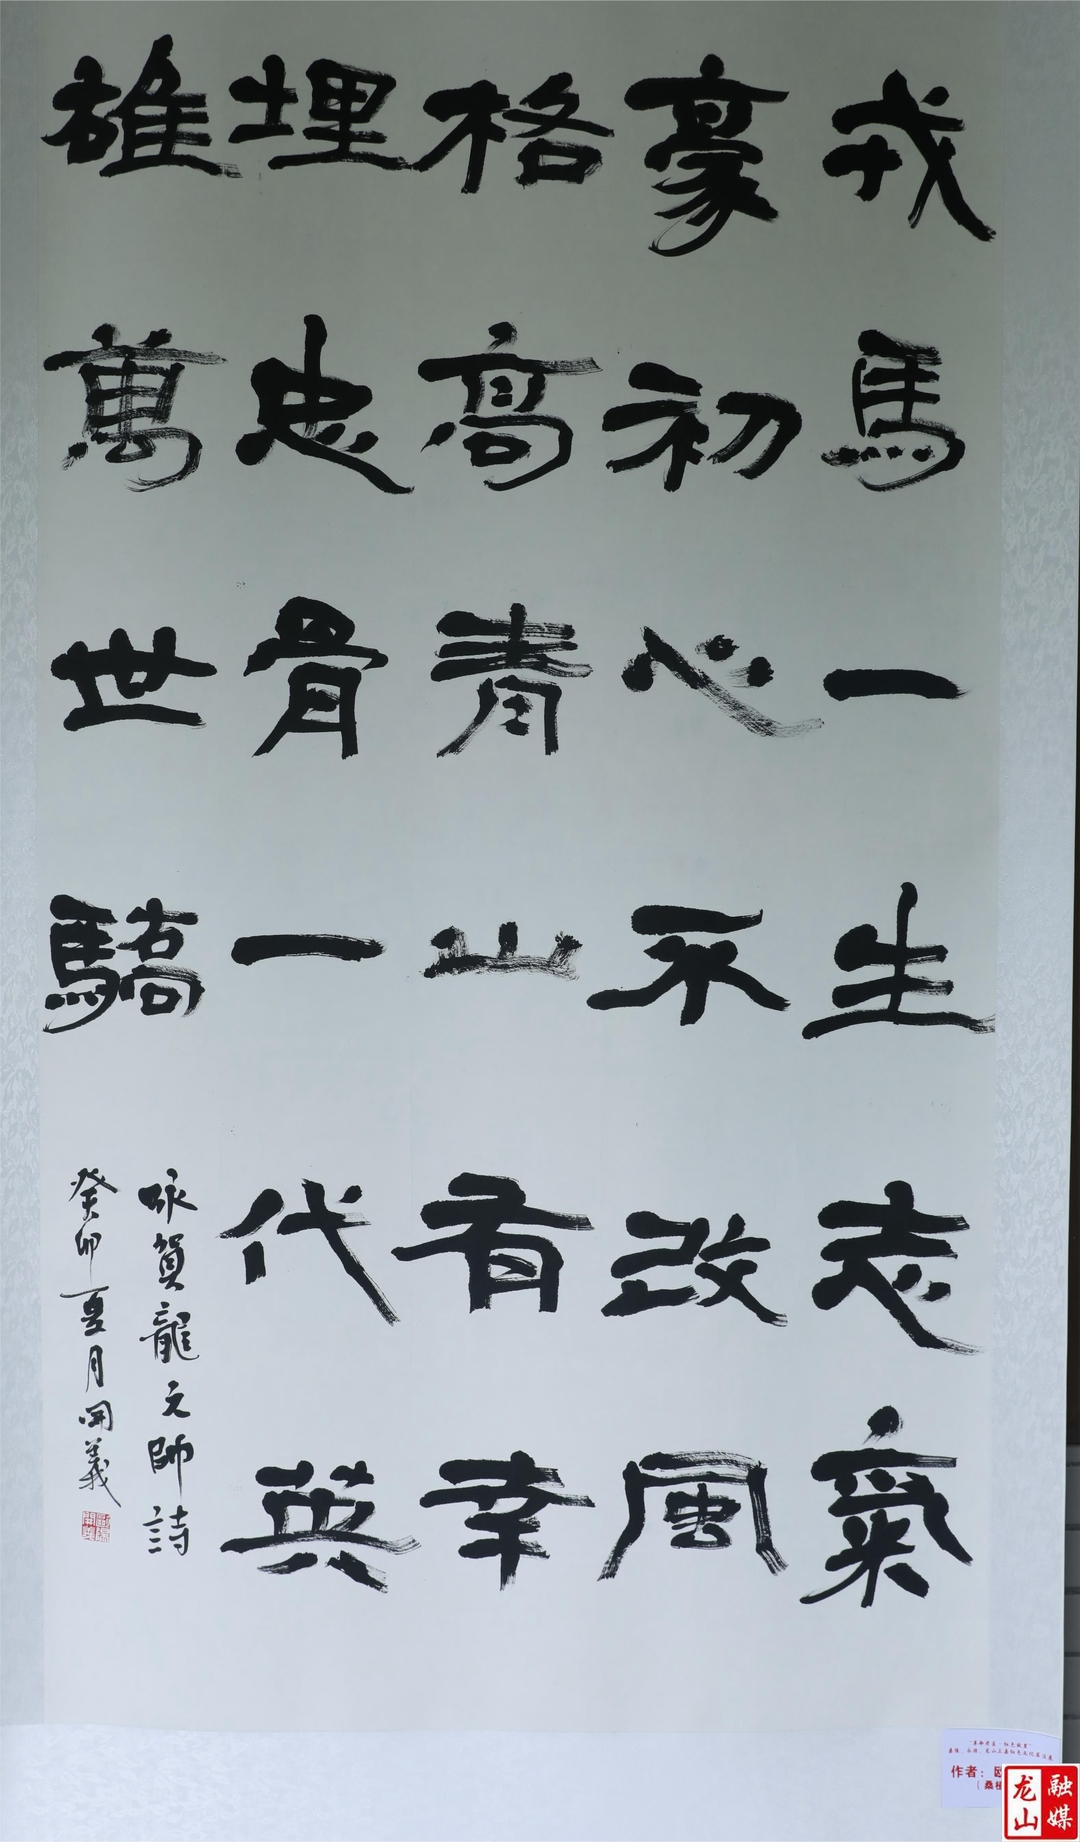 戎馬一生志氣
豪初心不改風
格高青山有幸
埋忠骨一代英
雄萬世驕
詠賀龍元帥詩
癸卯夏月開義
作者：
龙山
融媒